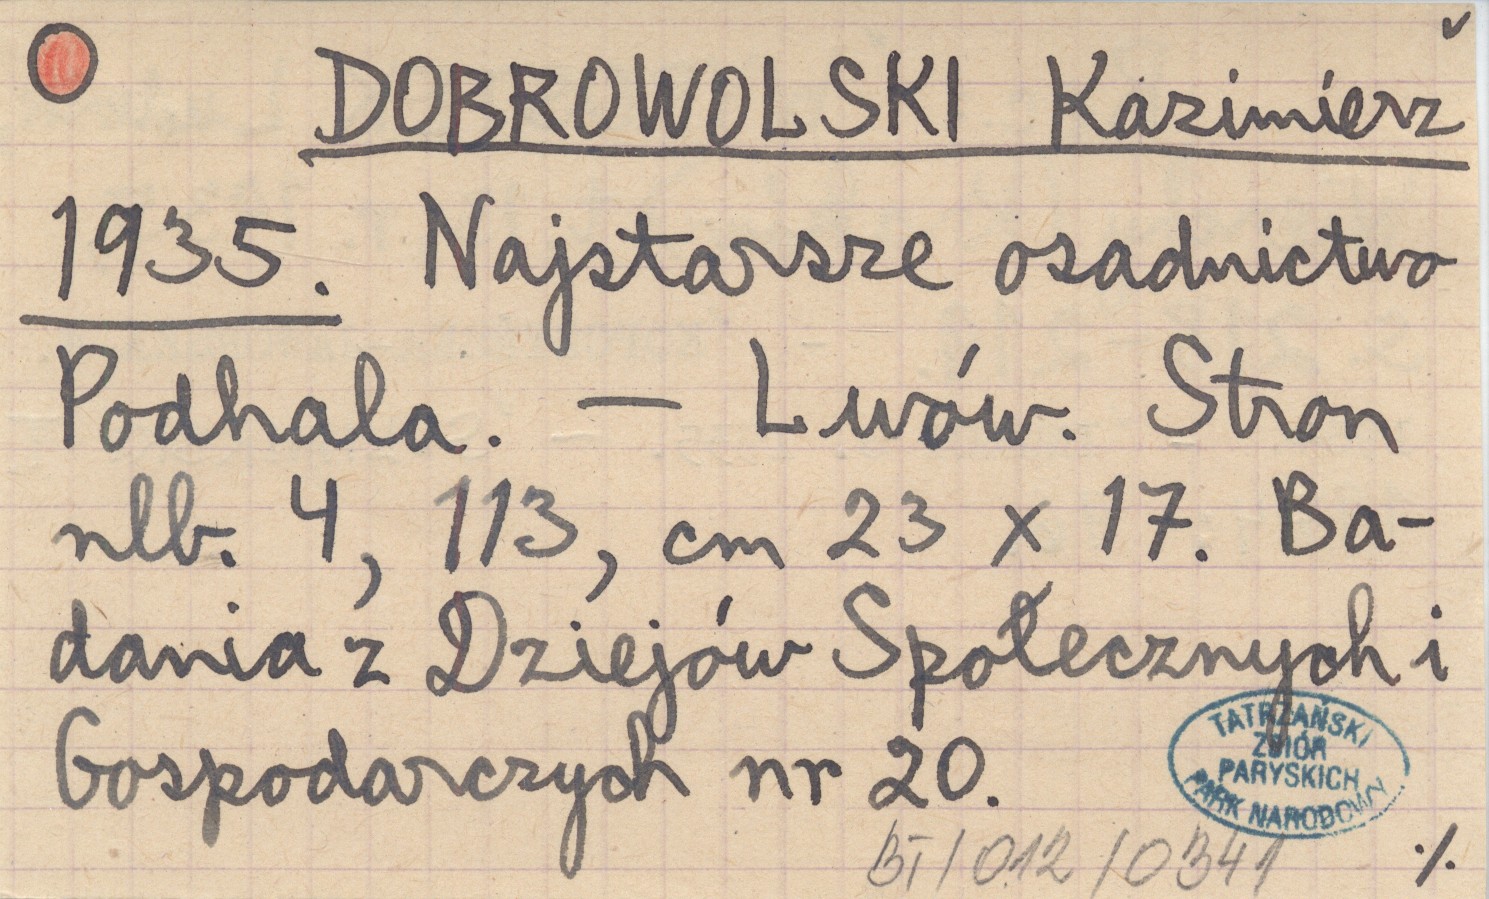 ✓
DOBROWOLSKI Kazimierz
1935. Najstarsze osadnictwo
Podhala. — Lwów. Stron
nlb. 4, 113, cm 23 x 17. Ba-
dania z Dziejów Społecznych i
Gospodarczych nr 20.
TATRZAŃSKI
ZBIÓR
PARYSKICH
PARK NARODOWY
BT/012/0341
·/.